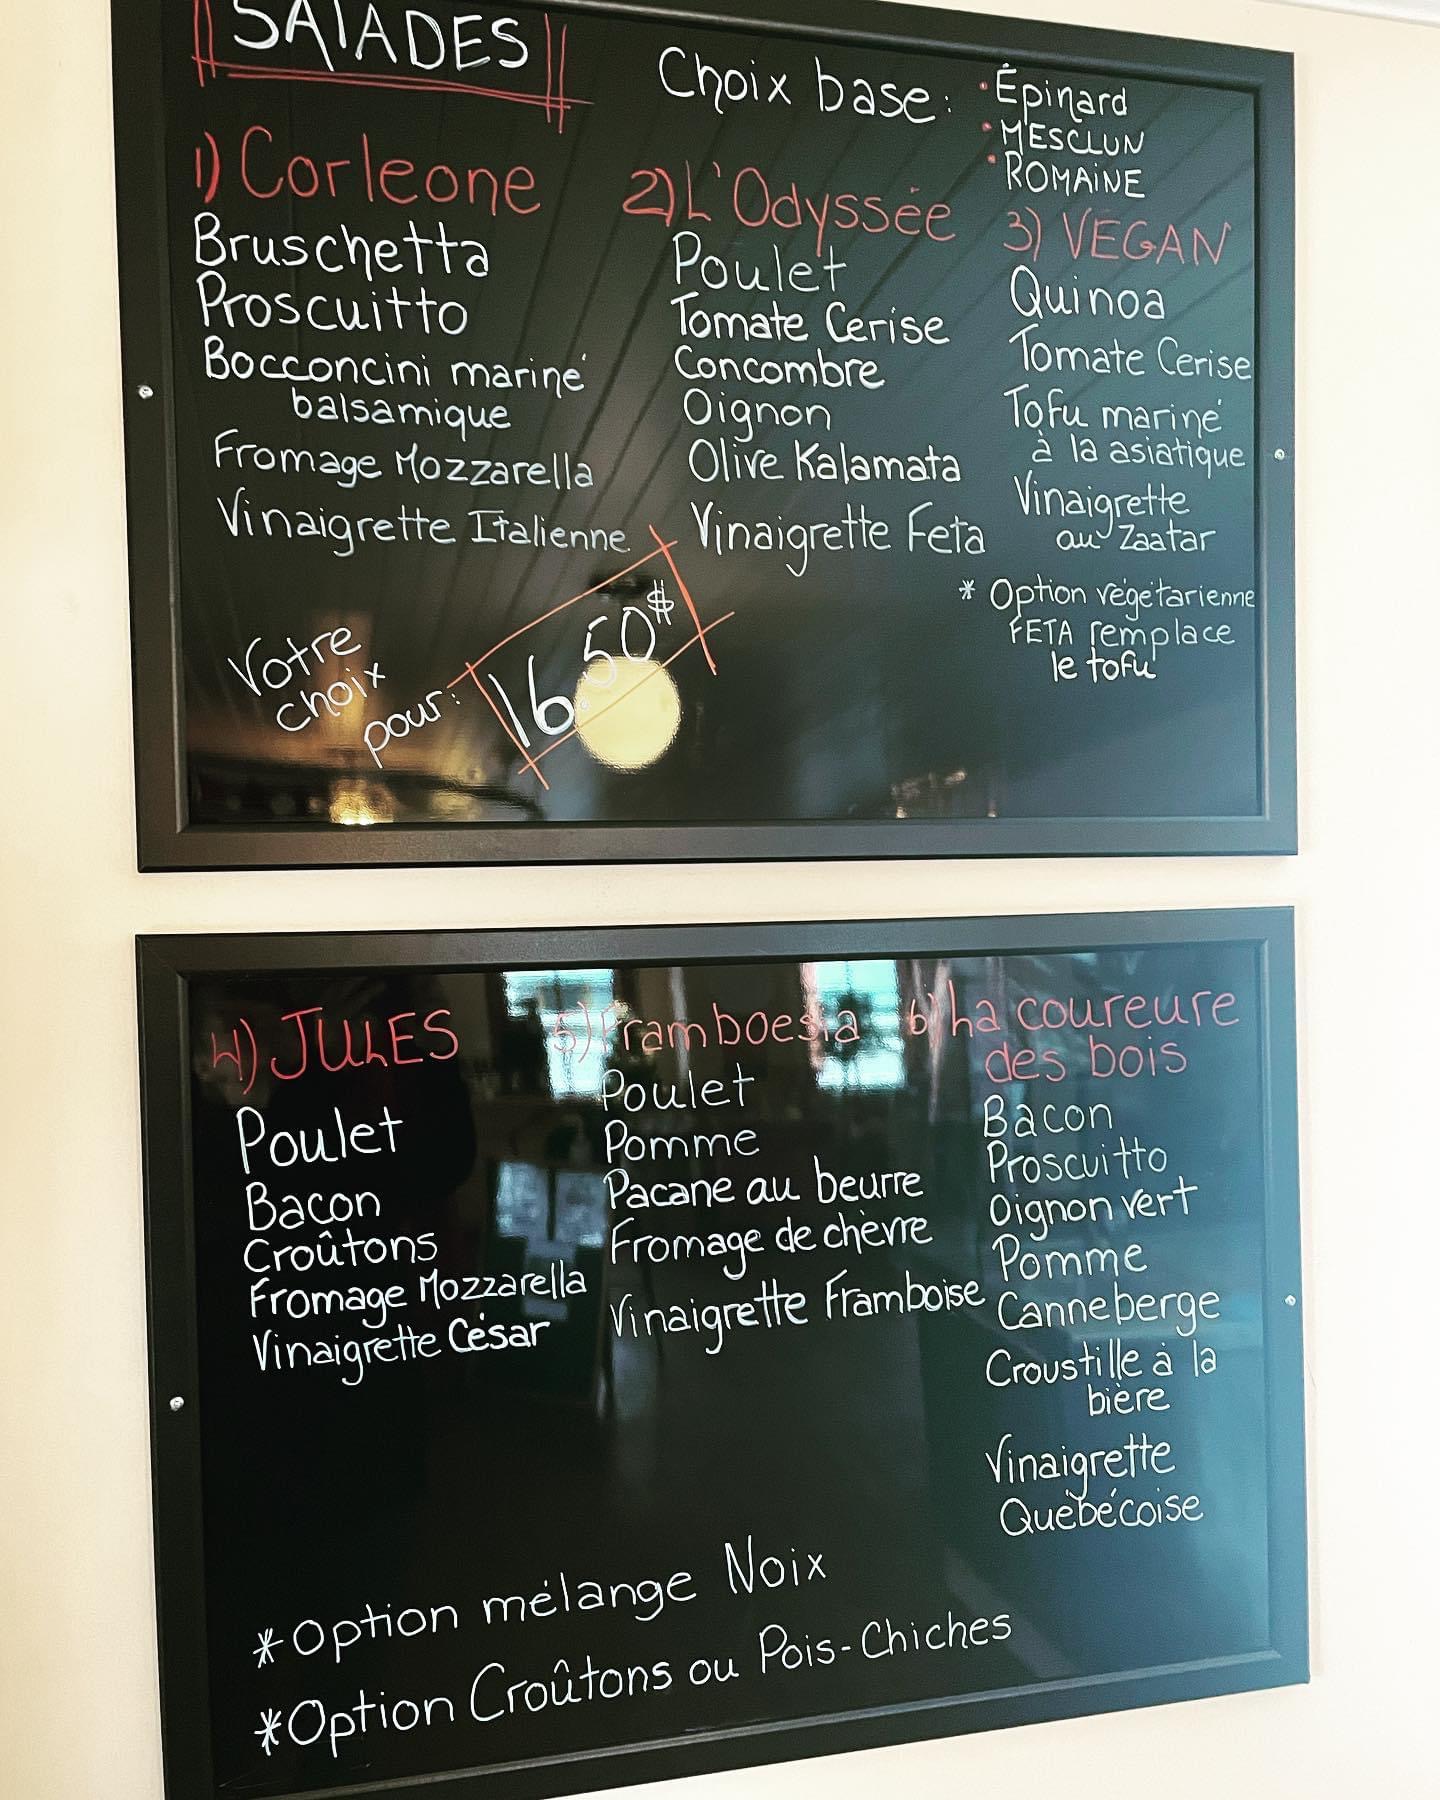 SALADES
Choix base:
• Épinard
• MESCLUN
• ROMAINE
1) Corleone
Bruschetta
Proscuitto
Bocconcini mariné
balsamique
Fromage Mozzarella
Vinaigrette Italienne
2) L'Odyssée
Poulet
Tomate Cerise
Concombre
Oignon
Olive Kalamata
Vinaigrette Feta
3) VEGAN
Quinoa
Tomate Cerise
Tofu mariné
à la asiatique
Vinaigrette
au Zaatar
* Option végétarienne
FETA remplace
le tofu
Votre
choix
pour:
16.50$
4) JULES
Poulet
Bacon
Croûtons
Fromage Mozzarella
Vinaigrette César
5) Framboesia
Poulet
Pomme
Pacane au beurre
Fromage de chèvre
Vinaigrette Framboise
6) La coureure
des bois
Bacon
Proscuitto
Oignon vert
Pomme
Canneberge
Croustille à la
bière
Vinaigrette
Québécoise
*Option mélange Noix
*Option Croûtons ou Pois-Chiches